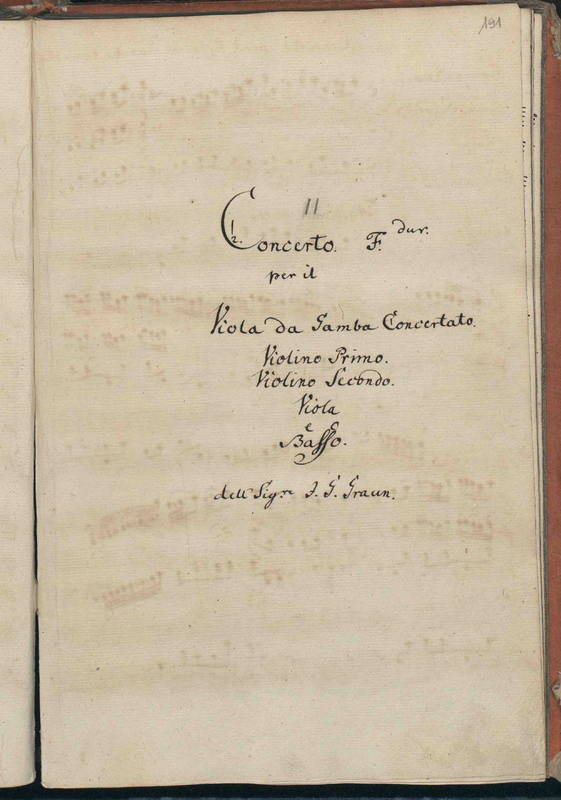 191
11
12. Concerto. F. dur.
per il
Viola da Gamba Concertato.
Violino Primo.
Violino Secondo.
Viola
e
Basso.
dell Sigre J. G. Graun.